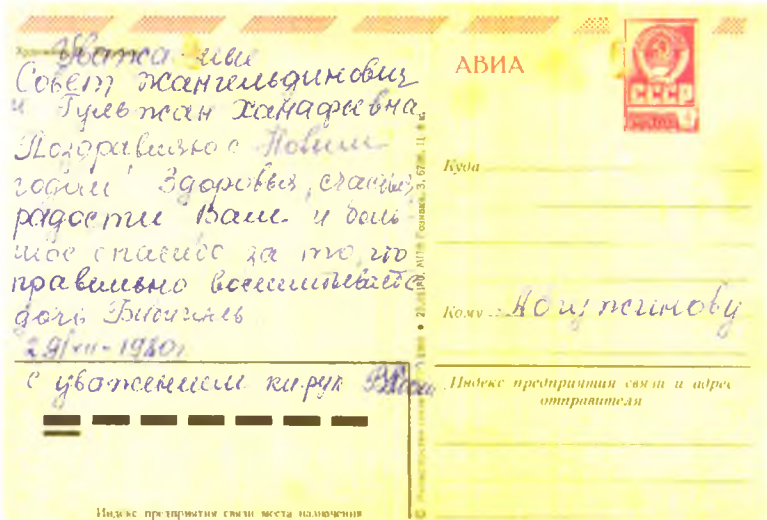 Уважаемые
Совет Жангельдинович
и Гульжан Ханафеевна
Поздравляю с Новым
годом! Здоровья, счастья,
радости Вам и боль-
шое спасибо за то, что
правильно воспитываете
дочь
29/XII-1980г
с уважением кл. рук
АВИА
СССР
Куда
Кому Абдужинову
Индекс предприятия связи и адрес
отправителя
Индекс предприятия связи места назначения